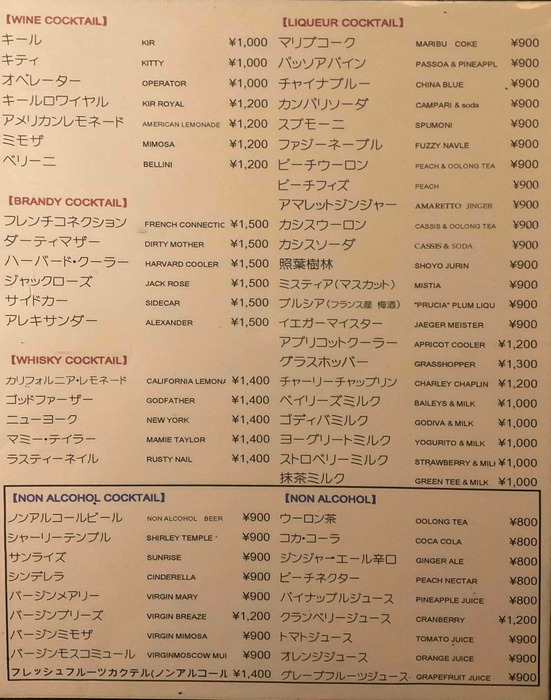 【WINE COCKTAIL】
キール KIR ¥1,000
キティ KITTY ¥1,000
オペレーター OPERATOR ¥1,000
キールロワイヤル KIR ROYAL ¥1,200
アメリカンレモネード AMERICAN LEMONADE ¥1,200
ミモザ MIMOSA ¥1,200
ベリーニ BELLINI ¥1,200
【BRANDY COCKTAIL】
フレンチコネクション FRENCH CONNECTIC ¥1,500
ダーティマザー DIRTY MOTHER ¥1,500
ハーバード・クーラー HARVARD COOLER ¥1,500
ジャックローズ JACK ROSE ¥1,500
サイドカー SIDECAR ¥1,500
アレキサンダー ALEXANDER ¥1,500
【WHISKY COCKTAIL】
カリフォルニア・レモネード CALIFORNIA LEMONA ¥1,400
ゴッドファーザー GODFATHER ¥1,400
ニューヨーク NEW YORK ¥1,400
マミー・テイラー MAMIE TAYLOR ¥1,400
ラスティーネイル RUSTY NAIL ¥1,400
【LIQUEUR COCKTAIL】
マリブコーク MARIBU COKE ¥900
パッソアパイン PASSOA & PINEAPPL ¥900
チャイナブルー CHINA BLUE ¥900
カンパリソーダ CAMPARI & soda ¥900
スプモーニ SPUMONI ¥900
ファジーネーブル FUZZY NAVLE ¥900
ピーチウーロン PEACH & OOLONG TEA ¥900
ピーチフィズ PEACH ¥900
アマレットジンジャー AMARETTO JINGER ¥900
カシスウーロン CASSIS & OOLONG TEA ¥900
カシスソーダ CASSIS & SODA ¥900
照葉樹林 SHOYO JURIN ¥900
ミスティア(マスカット) MISTIA ¥900
プルシア(フランス産 梅酒) "PRUCIA" PLUM LIQU ¥900
イエガーマイスター JAEGER MEISTER ¥900
アプリコットクーラー APRICOT COOLER ¥1,200
グラスホッパー GRASSHOPPER ¥1,300
チャーリーチャップリン CHARLEY CHAPLIN ¥1,200
ベイリーズミルク BAILEYS & MILK ¥1,000
ゴディバミルク GODIVA & MILK ¥1,000
ヨーグリートミルク YOGURITO & MILK ¥1,000
ストロベリーミルク STRAWBERRY & MILI ¥1,000
抹茶ミルク GREEN TEE & MILK ¥1,000
【NON ALCOHOL COCKTAIL】
ノンアルコールビール NON ALCOHOL BEER ¥900
シャーリーテンプル SHIRLEY TEMPLE ¥900
サンライズ SUNRISE ¥900
シンデレラ CINDERELLA ¥900
バージンメアリー VIRGIN MARY ¥900
バージンブリーズ VIRGIN BREAZE ¥1,200
バージンミモザ VIRGIN MIMOSA ¥900
バージンモスコミュール VIRGINMOSCOW MUI ¥900
フレッシュフルーツカクテル(ノンアルコール ¥1,400
【NON ALCOHOL】
ウーロン茶 OOLONG TEA ¥800
コカ・コーラ COCA COLA ¥800
ジンジャーエール辛口 GINGER ALE ¥800
ピーチネクター PEACH NECTAR ¥800
パイナップルジュース PINEAPPLE JUICE ¥800
クランベリージュース CRANBERRY ¥1,200
トマトジュース TOMATO JUICE ¥900
オレンジジュース ORANGE JUICE ¥900
グレープフルーツジュース GRAPEFRUIT JUICE ¥900